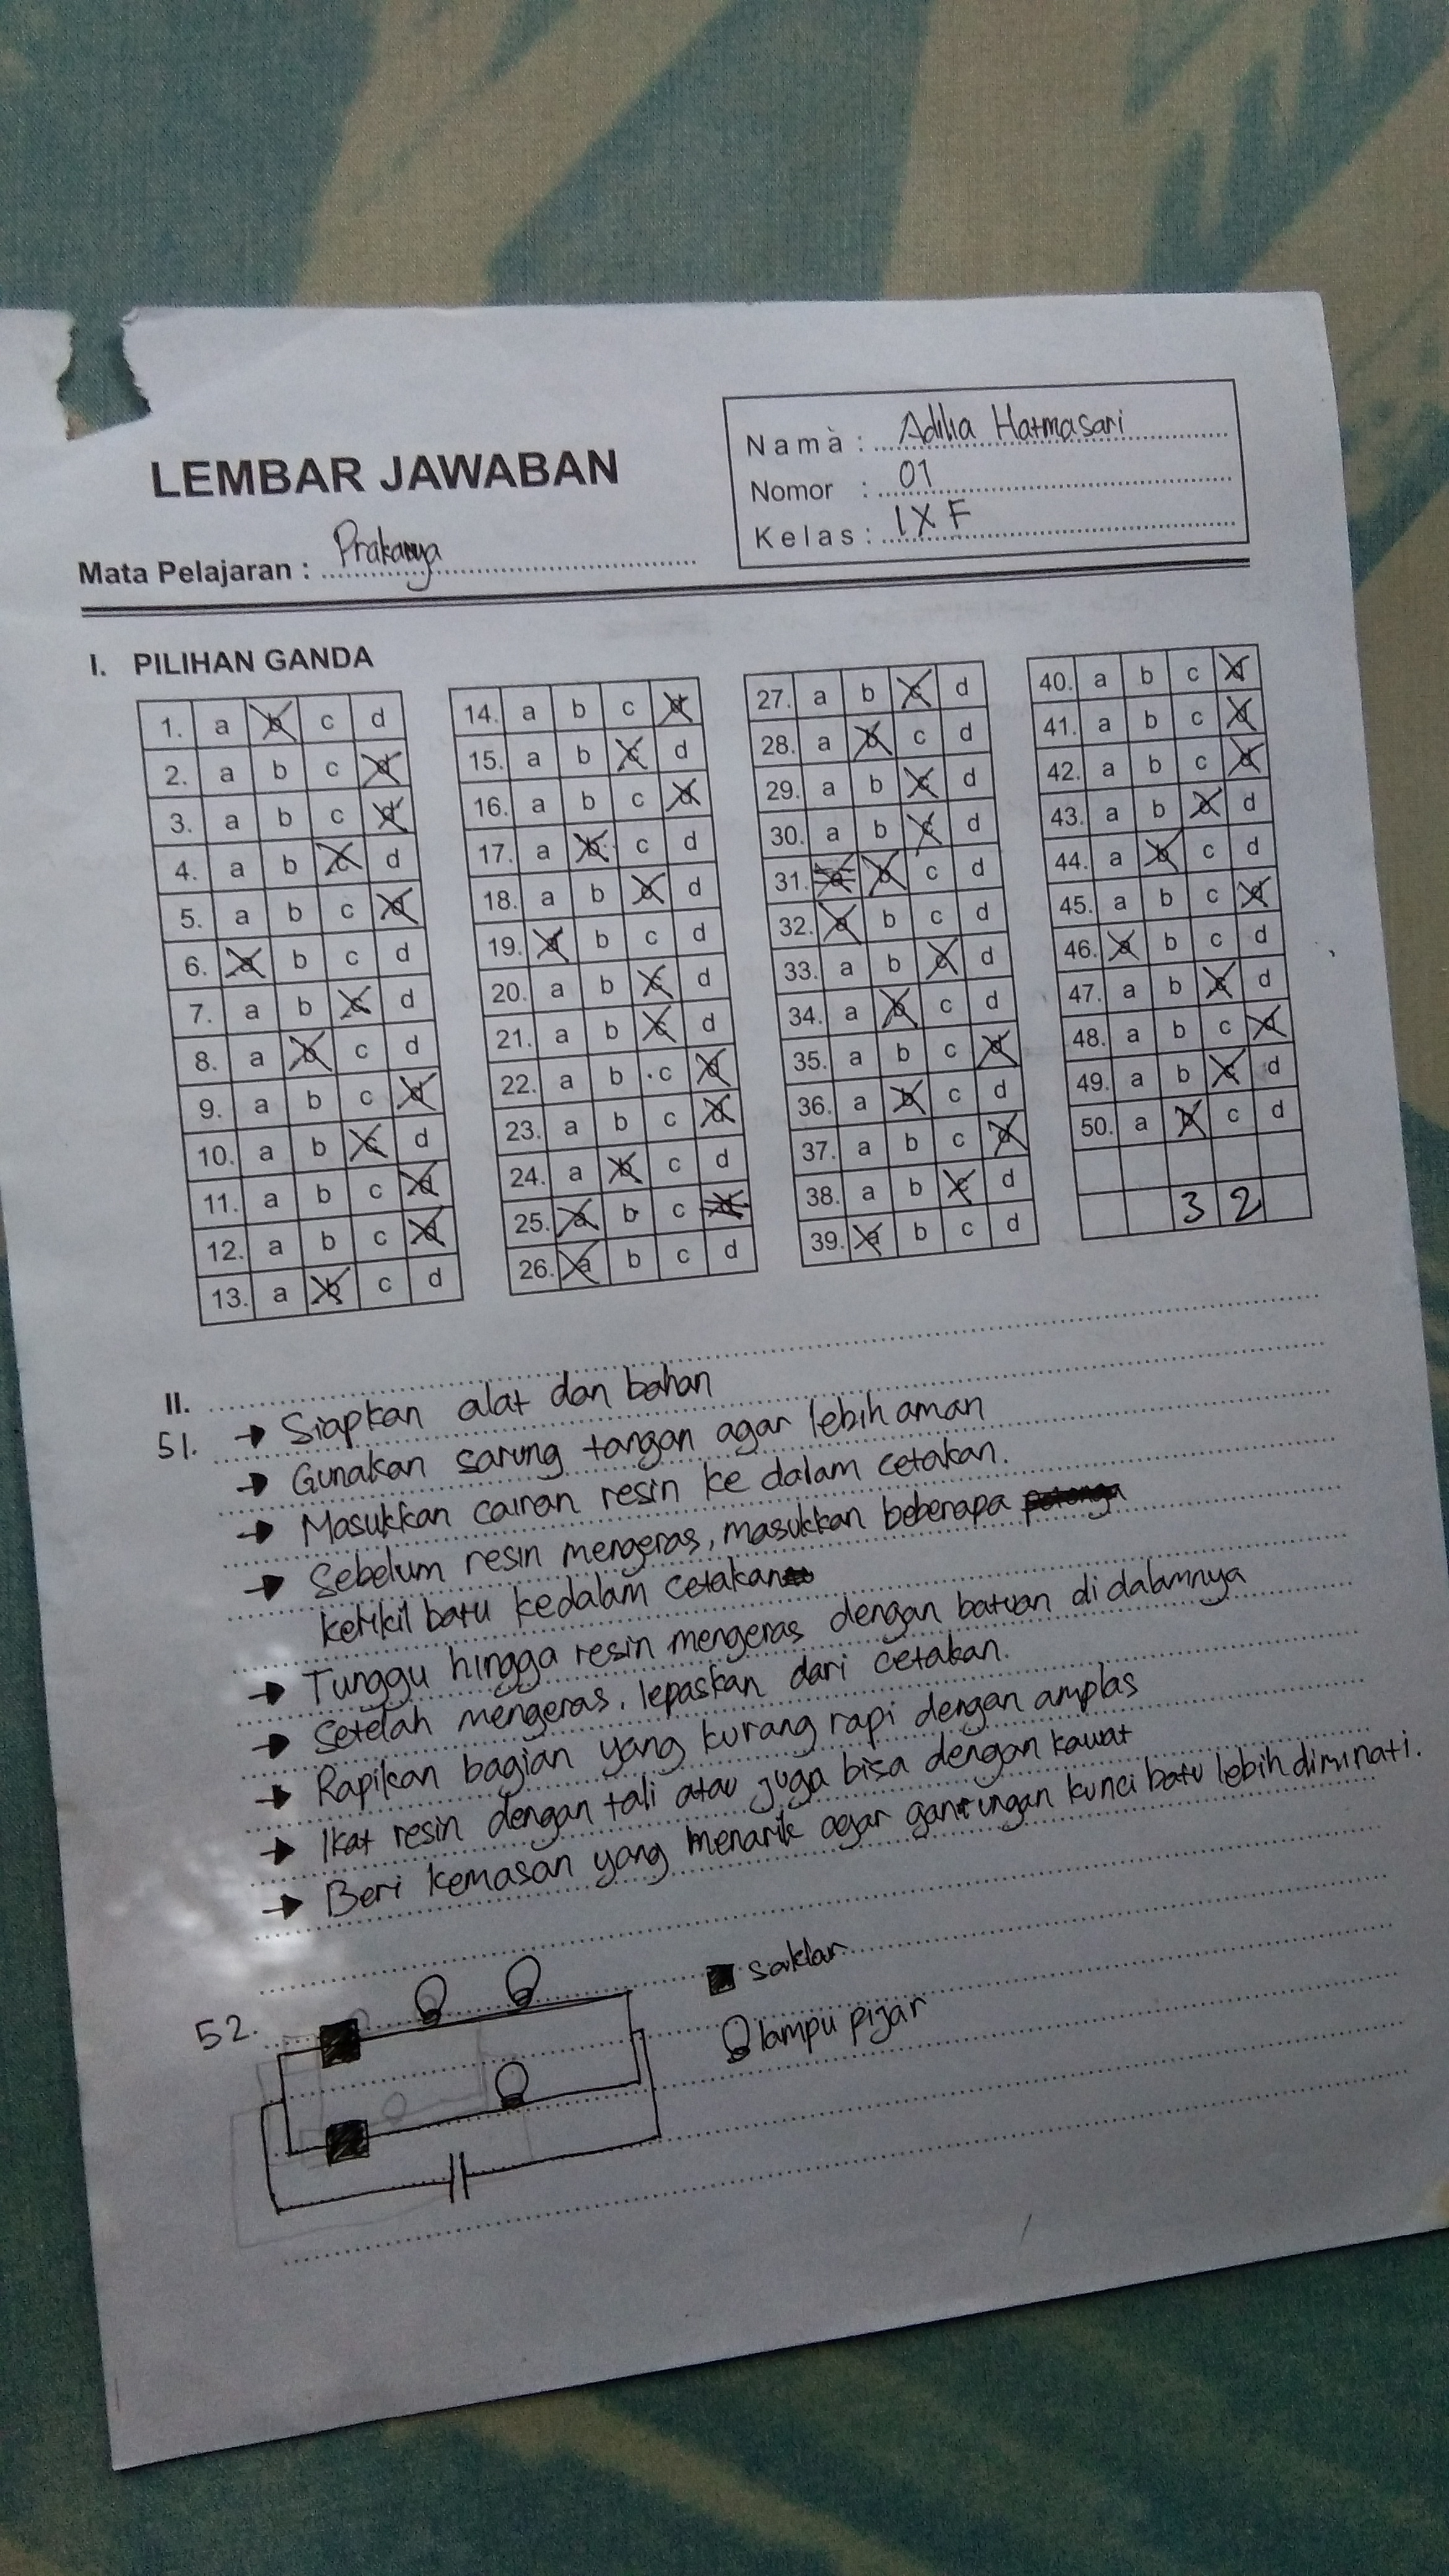 LEMBAR JAWABAN
Mata Pelajaran : Prakarya
Nama : Adilia Hatmasari
Nomor : 01
Kelas : IX F
I. PILIHAN GANDA
1. a b c d
2. a b c d
3. a b c d
4. a b c d
5. a b c d
6. a b c d
7. a b c d
8. a b c d
9. a b c d
10. a b c d
11. a b c d
12. a b c d
13. a b c d
14. a b c d
15. a b c d
16. a b c d
17. a b c d
18. a b c d
19. a b c d
20. a b c d
21. a b c d
22. a b c d
23. a b c d
24. a b c d
25. a b c d
26. a b c d
27. a b c d
28. a b c d
29. a b c d
30. a b c d
31. a b c d
32. a b c d
33. a b c d
34. a b c d
35. a b c d
36. a b c d
37. a b c d
38. a b c d
39. a b c d
40. a b c d
41. a b c d
42. a b c d
43. a b c d
44. a b c d
45. a b c d
46. a b c d
47. a b c d
48. a b c d
49. a b c d
50. a b c d
32
II.
51. → Siapkan alat dan bahan
→ Gunakan sarung tangan agar lebih aman
→ Masukkan cairan resin ke dalam cetakan.
→ Sebelum resin mengeras, masukkan beberapa
kerikil batu kedalam cetakan
→ Tunggu hingga resin mengeras dengan batuan di dalamnya
→ Setelah mengeras, lepaskan dari cetakan.
→ Rapikan bagian yang kurang rapi dengan amplas
→ Ikat resin dengan tali atau juga bisa dengan kawat
→ Beri kemasan yang menarik agar gantungan kunci batu lebih diminati.
52.
saklar
lampu pijar